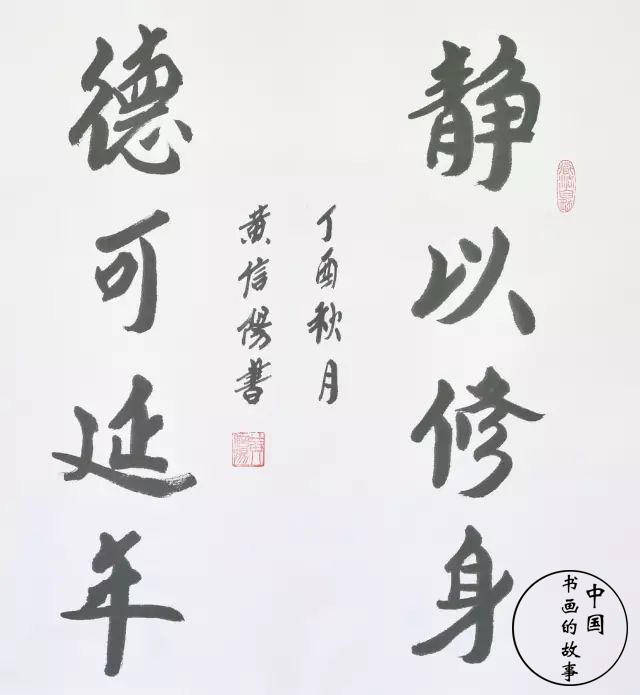 静以修身
丁酉秋月
黄信陽書
德可延年
中国
书画的故事